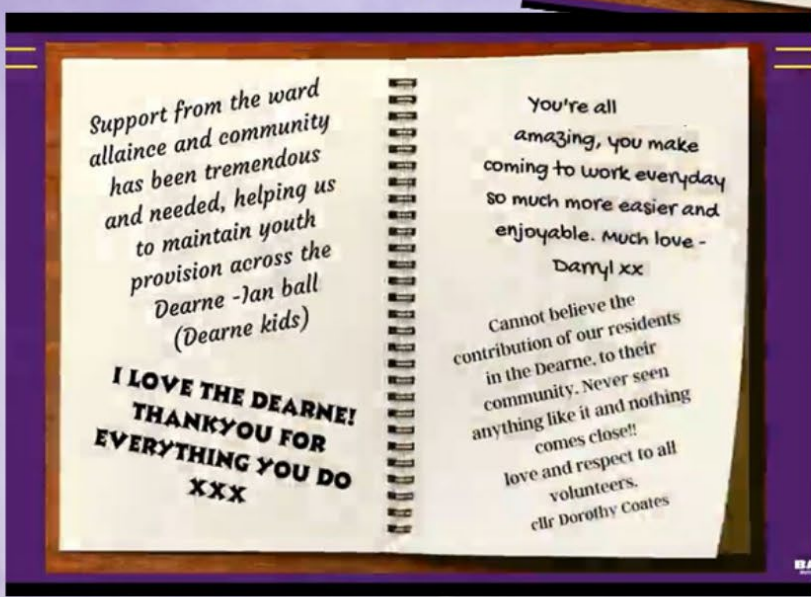 Support from the ward
allaince and community
has been tremendous
and needed, helping us
to maintain youth
provision across the
Dearne -Jan ball
(Dearne kids)
I LOVE THE DEARNE!
THANKYOU FOR
EVERYTHING YOU DO
XXX
You're all
amazing, you make
coming to work everyday
so much more easier and
enjoyable. Much love -
Darryl xx
Cannot believe the
contribution of our residents
in the Dearne, to their
community. Never seen
anything like it and nothing
comes close!!
love and respect to all
volunteers.
cllr Dorothy Coates